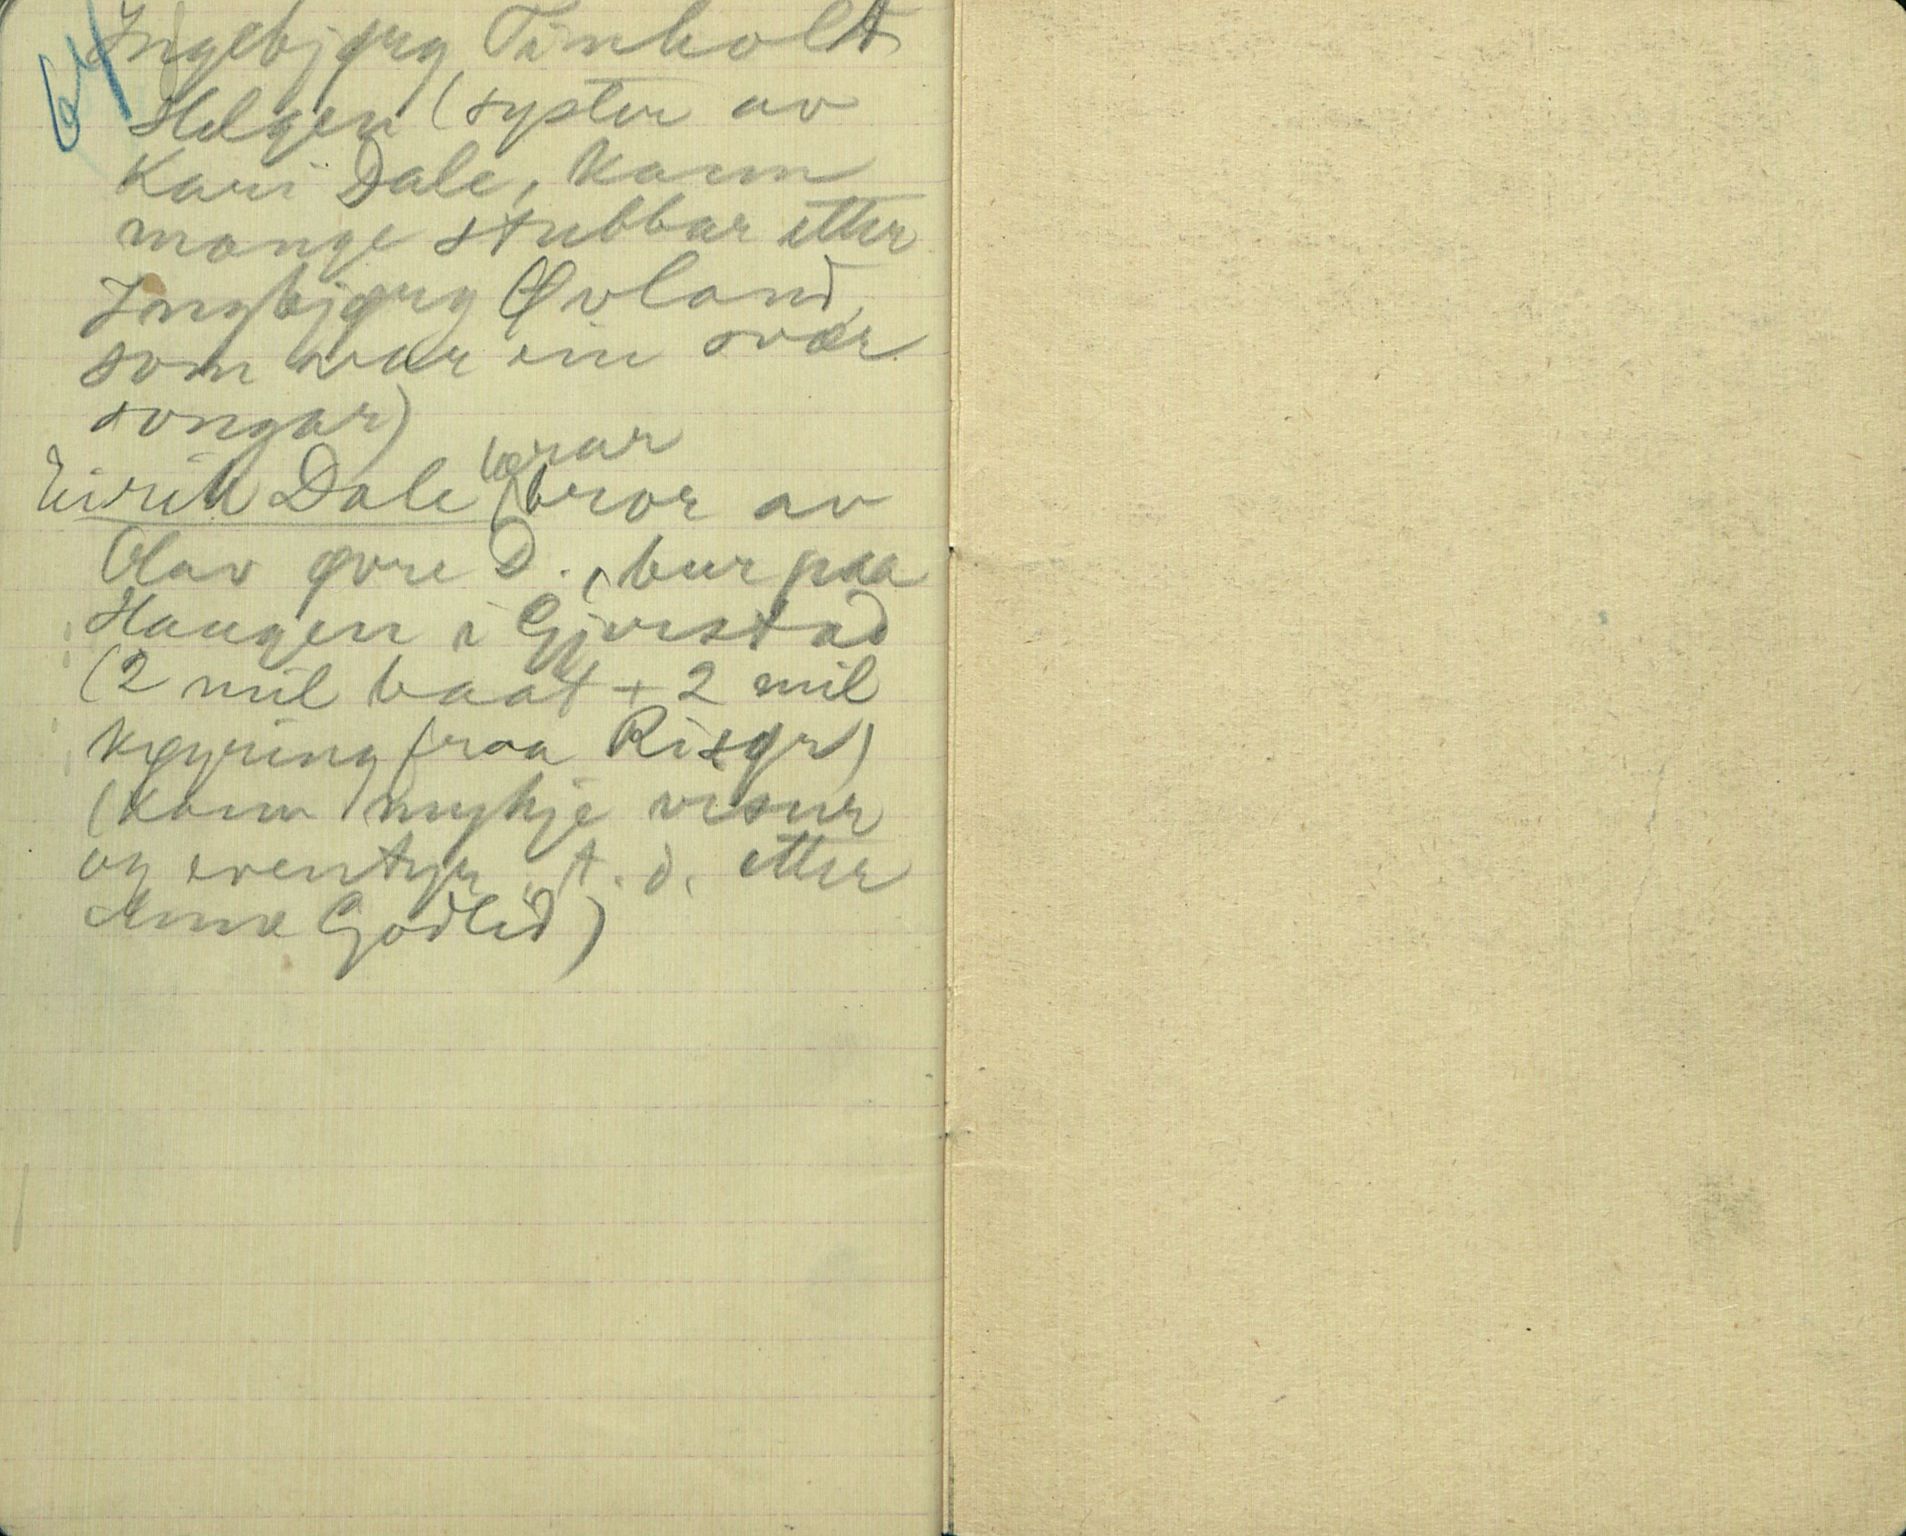 64
Ingebjørg Tinholt
Helgen (syster av
Kari Dale, kann
mange stubbar etter
Ingebjørg Øvland,
som var ein svær
songar)
lærar
Eirik Dale (bror av
Olav øvre D., bur paa
Haugen i Gjerstad
(2 mil baat + 2 mil
køyring fraa Risør)
(kann mykje visur
og eventyr, t. d. etter
Anne Godlid)